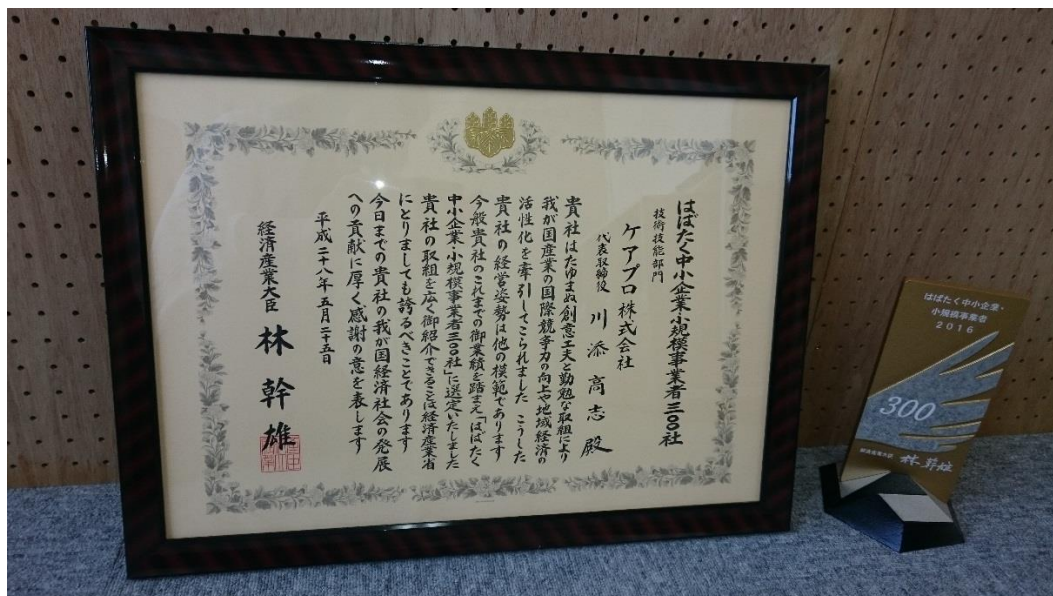 はばたく中小企業小規模事業者三〇〇社
技術技能部門
ケアプロ株式会社
代表取締役 川添高志殿
貴社はたゆまぬ創意工夫と勤勉な取組により
我が国産業の国際競争力の向上や地域経済の
活性化を牽引してこられました こうした
貴社の経営姿勢は他の模範であります
今般貴社のこれまでの御業績を踏まえ「はばたく
中小企業・小規模事業者三〇〇社」に選定いたしました
貴社の取組を広く御紹介できることは経済産業省
にとりましても誇るべきことであります
今日までの貴社の我が国経済社会の発展
への貢献に厚く感謝の意を表します
平成二十八年五月二十五日
経済産業大臣 林幹雄
はばたく中小企業・
小規模事業者
2016
300
経済産業大臣 林幹雄